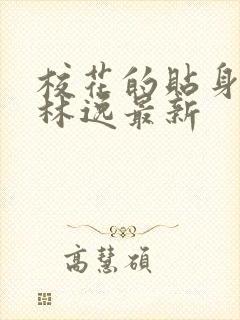 校花的貼身
林逸最新
高慧碩